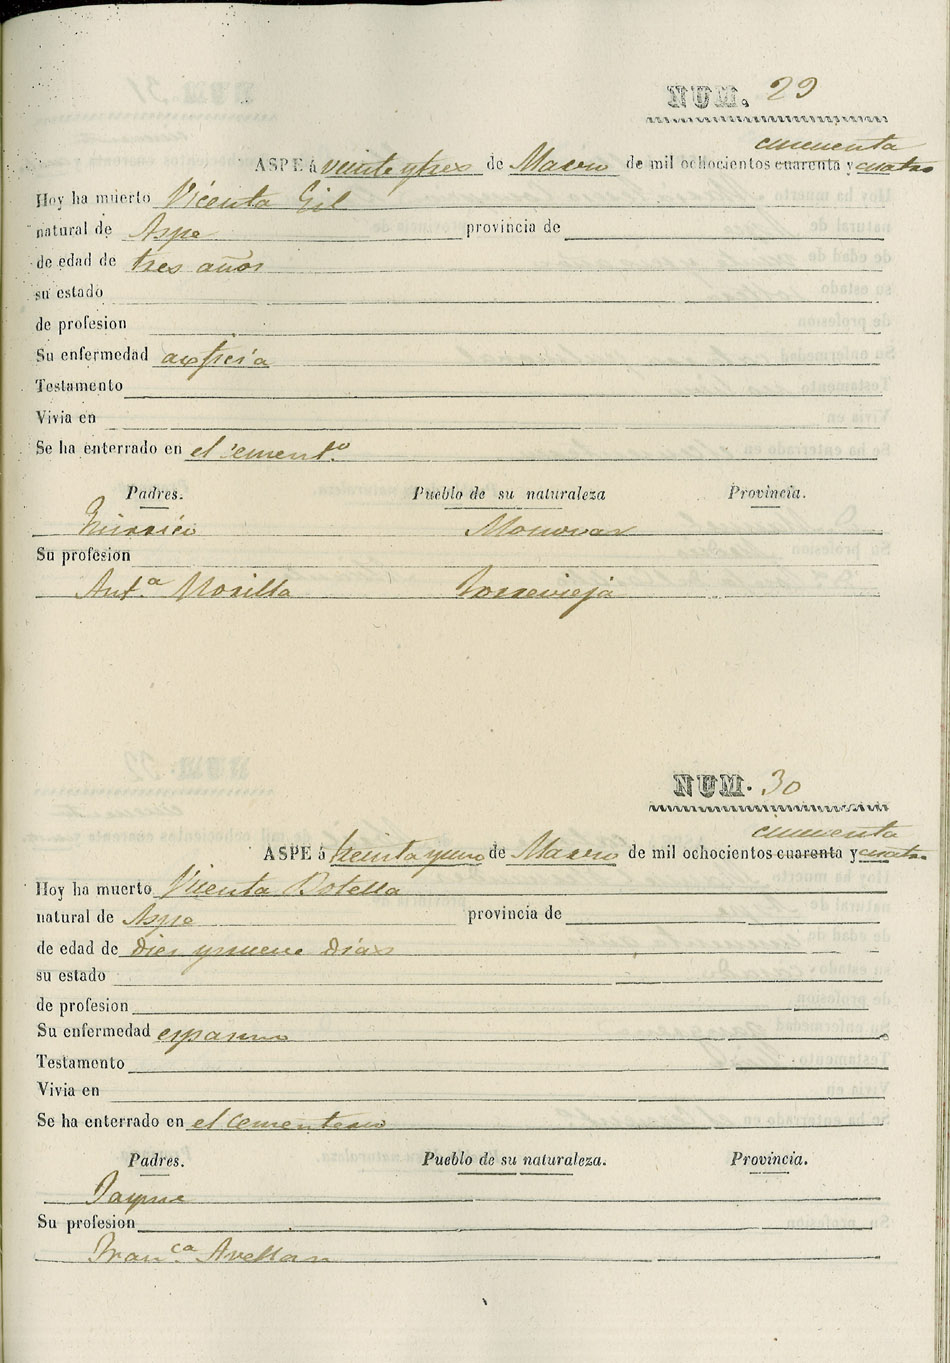 NUM. 29
cincuenta
ASPE á veinte y tres de Marzo de mil ochocientos cuarenta y cuatro
Hoy ha muerto Vicenta Gil
natural de Aspe provincia de
de edad de tres años
su estado
de profesion
Su enfermedad
Testamento
Vivia en
Se ha enterrado en el cement.º
Padres. Pueblo de su naturaleza Provincia.
Monovar
Su profesion
Ant.ª Morilla Torrevieja
NUM. 30
cincuenta
ASPE á treinta y uno de Marzo de mil ochocientos cuarenta y cuatro
Hoy ha muerto Vicenta Botella
natural de Aspe provincia de
de edad de diez y nueve dias
su estado
de profesion
Su enfermedad espasmo
Testamento
Vivia en
Se ha enterrado en el cementerio
Padres. Pueblo de su naturaleza. Provincia.
Jayme
Su profesion
Fran.ca Avellan